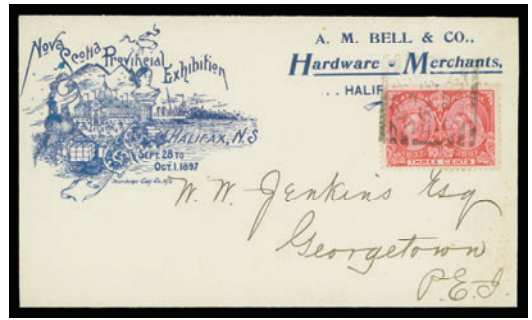 Nova Scotia Provincial Exhibition
HALIFAX, N.S
SEPT. 28 TO
OCT. 1. 1897
A. M. BELL & CO.,
Hardware - Merchants,
HALIF
THREE CENTS
W. W. Jenkins Esq
Georgetown
P.E.I.